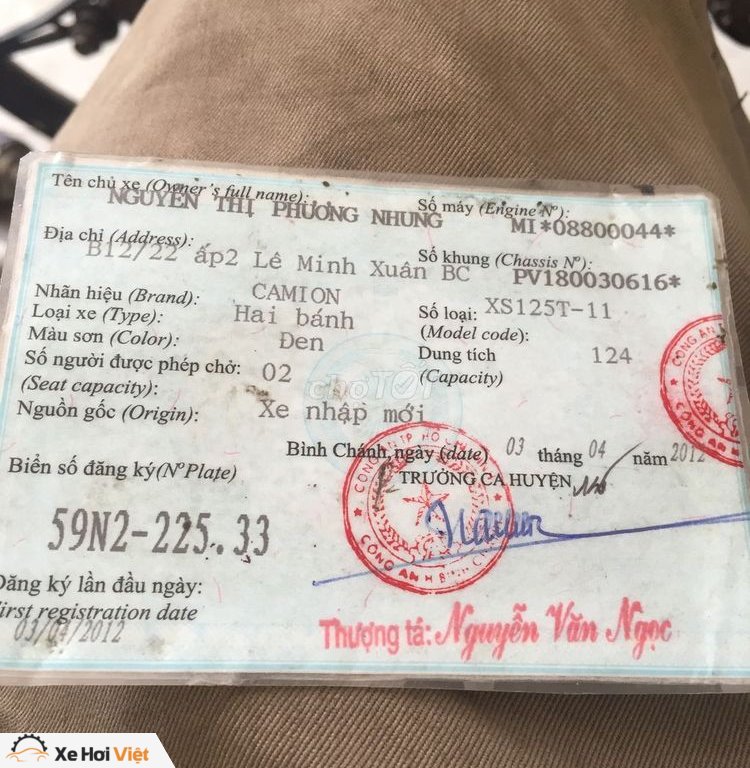 Tên chủ xe (Owner's full name):
NGUYỄN THỊ PHƯƠNG NHUNG
Số máy (Engine Nº):
MI*08800044*
Địa chỉ (Address):
B12/22 ấp2 Lê Minh Xuân BC
Số khung (Chassis Nº):
PV180030616*
Nhãn hiệu (Brand): CAMION
Số loại: XS125T-11
(Model code):
Loại xe (Type): Hai bánh
Màu sơn (Color): Đen
Dung tích 124
(Capacity)
Số người được phép chở: 02
(Seat capacity):
Nguồn gốc (Origin): Xe nhập mới
choTỐT
Bình Chánh, ngày (date) 03 tháng 04 năm 2012
TRƯỞNG CA HUYỆN
Biển số đăng ký(NºPlate)
59N2-225.33
CÔNG AN TP HỒ CHÍ
CÔNG AN H BÌNH
CÔNG AN
CÔNG AN H
Đăng ký lần đầu ngày:
First registration date
03/04/2012
Thượng tá: Nguyễn Văn Ngọc
Xe Hơi Việt